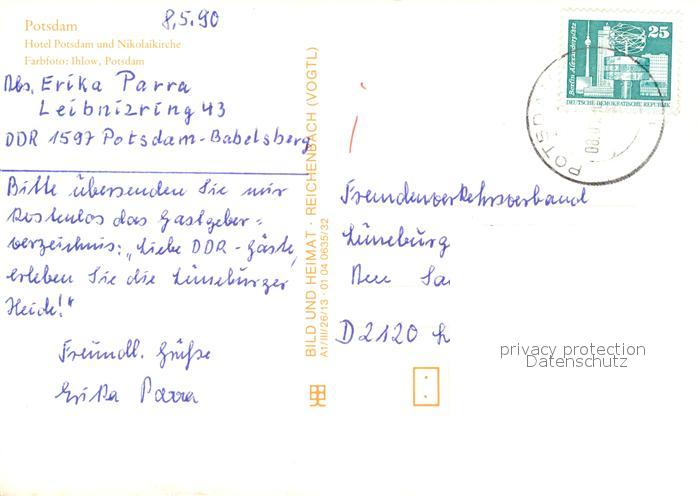 Potsdam
Hotel Potsdam und Nikolaikirche
Farbfoto: Ihlow, Potsdam
8.5.90
Abs. Erika Parra
Leibnizring 43
DDR 1597 Potsdam-Babelsberg
Bitte übersenden Sie mir
kostenlos das Gastgeber=
verzeichnis: „Liebe DDR-Gäste,
erleben Sie die Lüneburger
Heide!"
Freundl. Grüße
Erika Parra
BILD UND HEIMAT · REICHENBACH (VOGTL)
A1/III/26/13 · 01 04 0635/32
Berlin, Alexanderplatz
25
DEUTSCHE DEMOKRATISCHE REPUBLIK
POTSDA
08.0
Fremdenverkehrsverband
Lüneburg
D 2120 L
privacy protection
Datenschutz